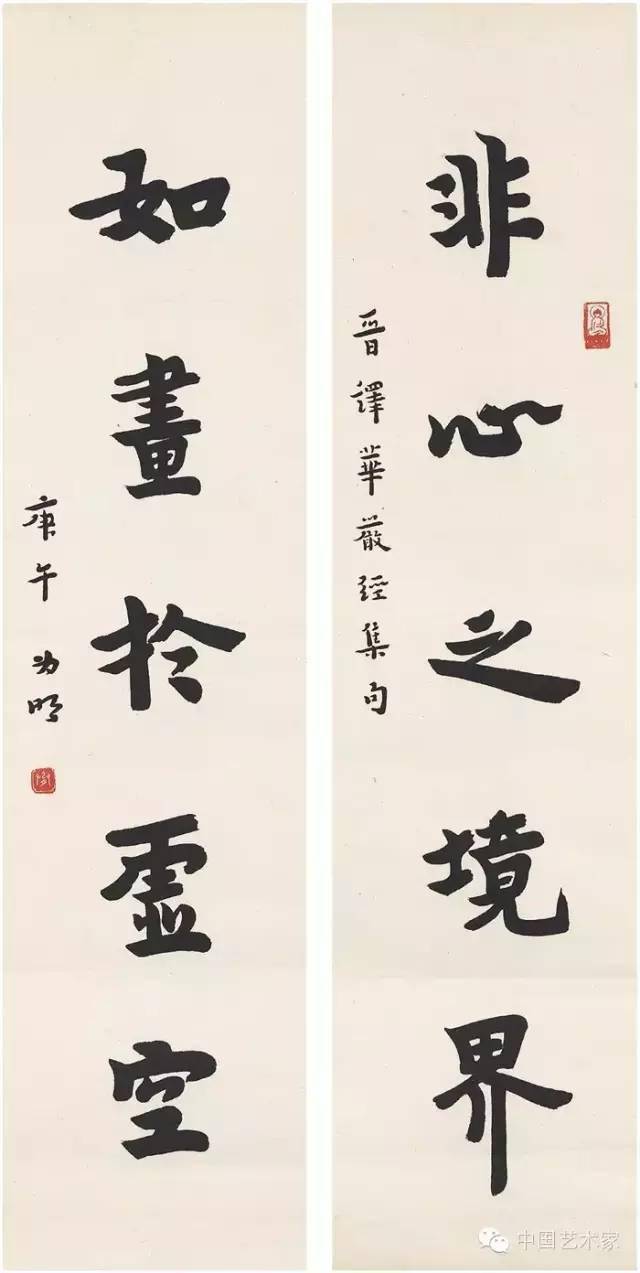 非心之境界
晉譯華嚴經集句
如畫於虛空
庚午 為明
中国艺术家